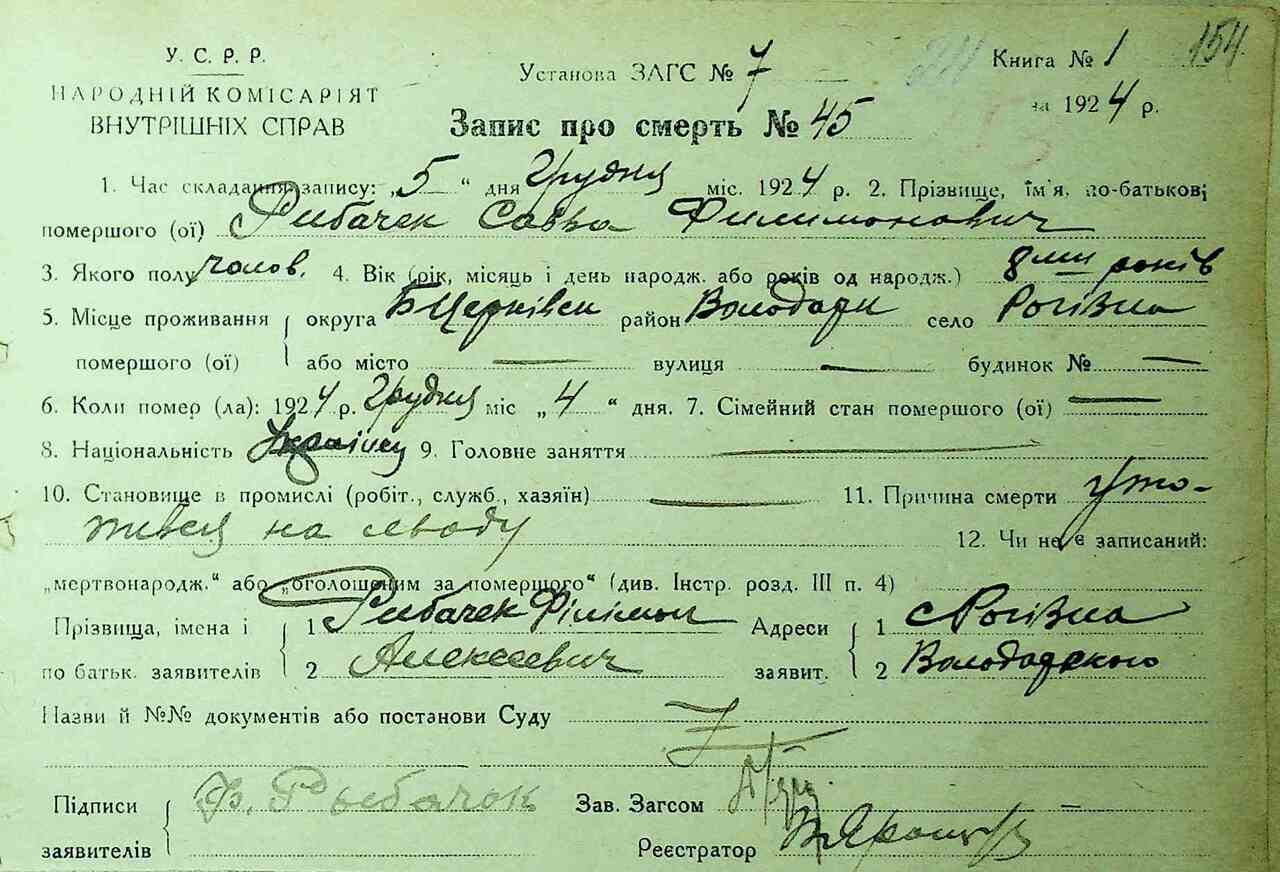 У. С. Р. Р.
НАРОДНІЙ КОМІСАРІЯТ
ВНУТРІШНІХ СПРАВ
Установа ЗАГС № 7
Книга № 1
154
за 1924 р.
Запис про смерть № 45
1. Час складання запису: „5“ дня Грудня міс. 1924 р. 2. Прізвище, ім'я, по-батькові
помершого (ої) Рибачек Савка Филимонович
3. Якого полу чолов. 4. Вік (рік, місяць і день народж. або років од народж.) 8ми років
5. Місце проживання округа БЦерківськ район Володарк село Рогізна
помершого (ої) або місто — вулиця — будинок № —
6. Коли помер (ла): 1924 р. Грудня міс „4“ дня. 7. Сімейний стан помершого (ої) —
8. Національність Українец 9. Головне заняття —
10. Становище в промислі (робіт., служб., хазяїн) — 11. Причина смерти уто-
пився на льоду
12. Чи не є записаний:
„мертвонародж.“ або „оголошеним за помершого“ (див. Інстр. розд. III п. 4)
Прізвища, імена і 1 Рибачек Філімон Адреси 1 с Рогізна
по батьк. заявителів 2 Алексеевич заявит. 2 Володарського
Назви й №№ документів або постанови Суду
Підписи Ф. Рыбачок Зав. Загсом
заявителів Реєстратор